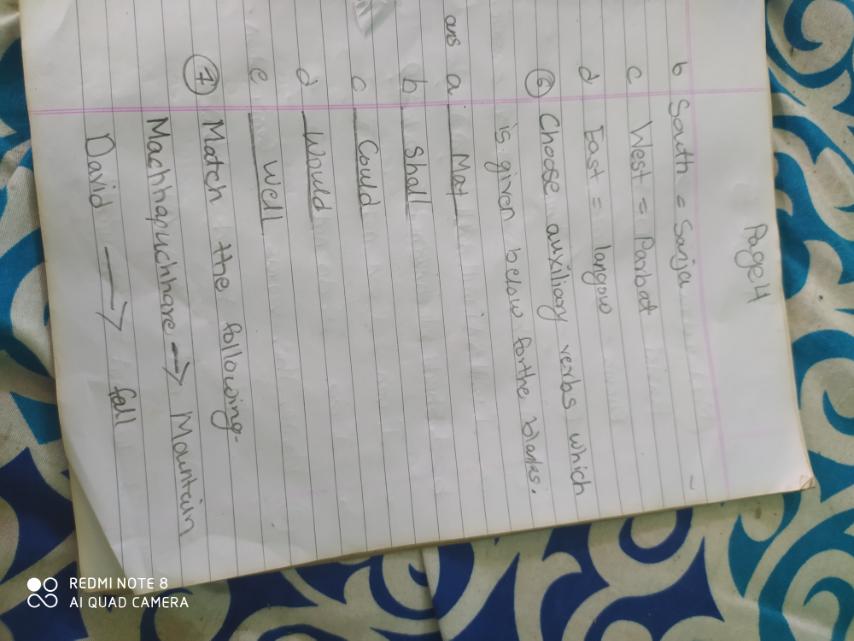 Page 4
b South = Sanja
c West = Parbat
d East = langow
⑥ Choose auxiliary verbs which
is given below for the blanks.
ans a. May
b Shall
c Could
d Would
e Well
⑦ Match the following.
Machhapuchhare → Mountain
David → fall
REDMI NOTE 8
AI QUAD CAMERA